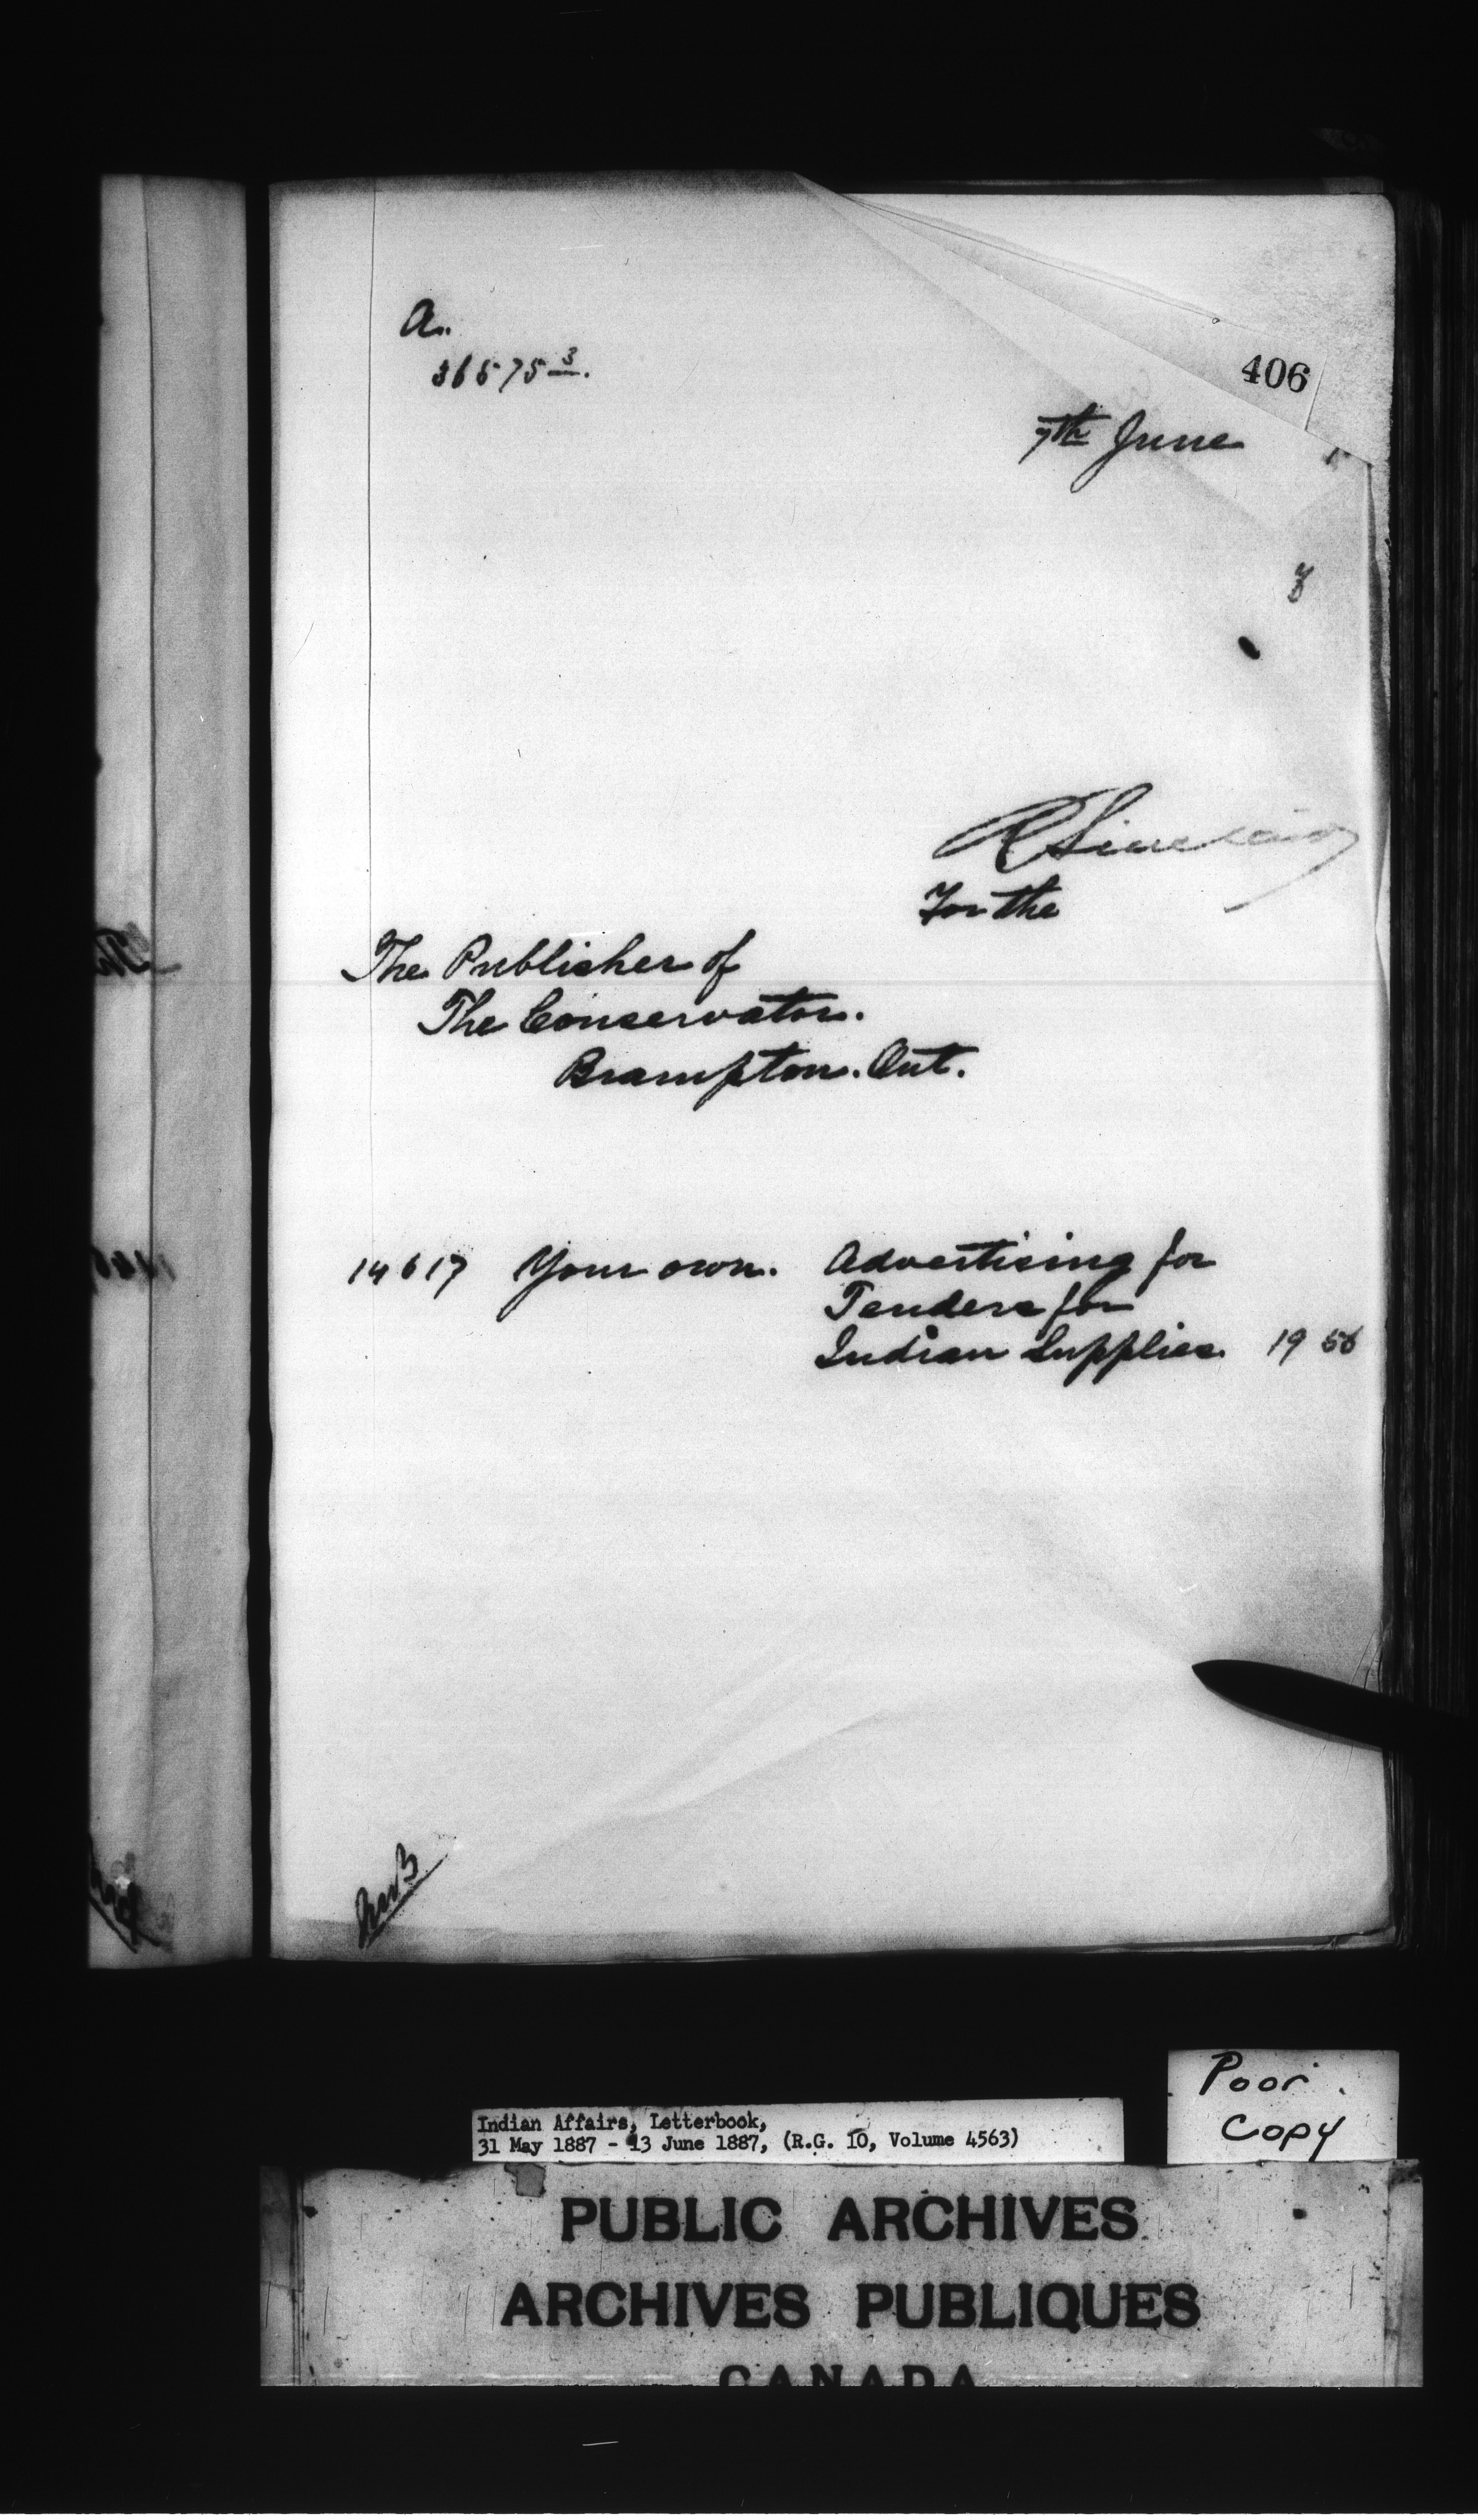 a..
36575 3.
406
7th June 7
y
R Sinclair
For the
The Publisher of
The Conservator.
Brampton. Ont.
14617 Your own. Advertising for
Tenders for
Indian Supplies. 19 56
Poor
Copy
Indian Affairs, Letterbook,
31 May 1887 - 13 June 1887, (R.G. 10, Volume 4563)
PUBLIC ARCHIVES
ARCHIVES PUBLIQUES
CANADA